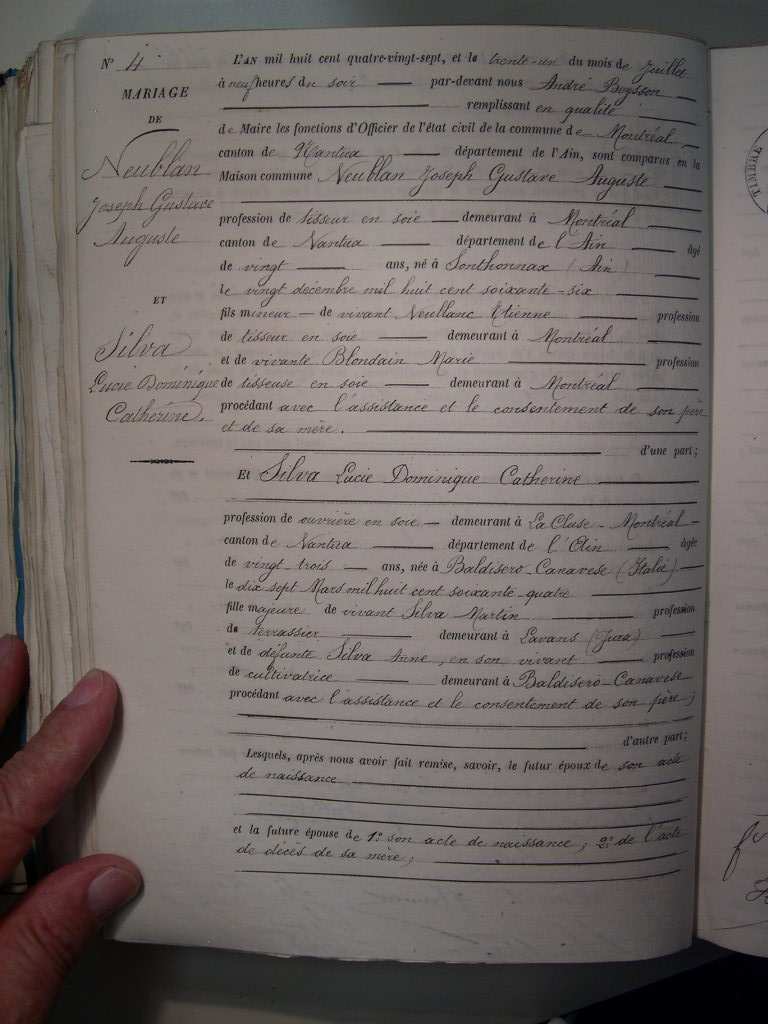 N° 4
MARIAGE
DE
Neublan
Joseph Gustave
Auguste
ET
Silva
Lucie Dominique
Catherine.
L'AN mil huit cent quatre-vingt-sept, et le trente-un du mois de Juillet
à neuf heures du soir par-devant nous André Buysson
remplissant en qualité
de Maire les fonctions d'Officier de l'état civil de la commune de Montréal
canton de Nantua département de l'Ain, sont comparus en la
Maison commune Neublan Joseph Gustave Auguste
profession de tisseur en soie demeurant à Montréal
canton de Nantua département de l'Ain âgé
de vingt ans, né à Sonthonnax (Ain)
le vingt décembre mil huit cent soixante-six
fils mineur de vivant Neublanc Etienne profession
de tisseur en soie demeurant à Montréal
et de vivante Blondain Marie profession
de tisseuse en soie demeurant à Montréal
procédant avec l'assistance et le consentement de son père
et de sa mère.
d'une part;
Et Silva Lucie Dominique Catherine
profession de ouvrière en soie demeurant à La Cluse-Montréal
canton de Nantua département de l'Ain âgée
de vingt-trois ans, née à Baldisero-Canavese (Italie)
le dix sept Mars mil huit cent soixante-quatre
fille majeure de vivant Silva Martin profession
de terrassier demeurant à Lavans (Jura)
et de défunte Silva Anne, en son vivant profession
de cultivatrice demeurant à Baldisero-Canavese
procédant avec l'assistance et le consentement de son père;
d'autre part;
Lesquels, après nous avoir fait remise, savoir, le futur époux de son acte
de naissance
et la future épouse de 1° son acte de naissance; 2° de l'acte
de décès de sa mère;
TIMBRE